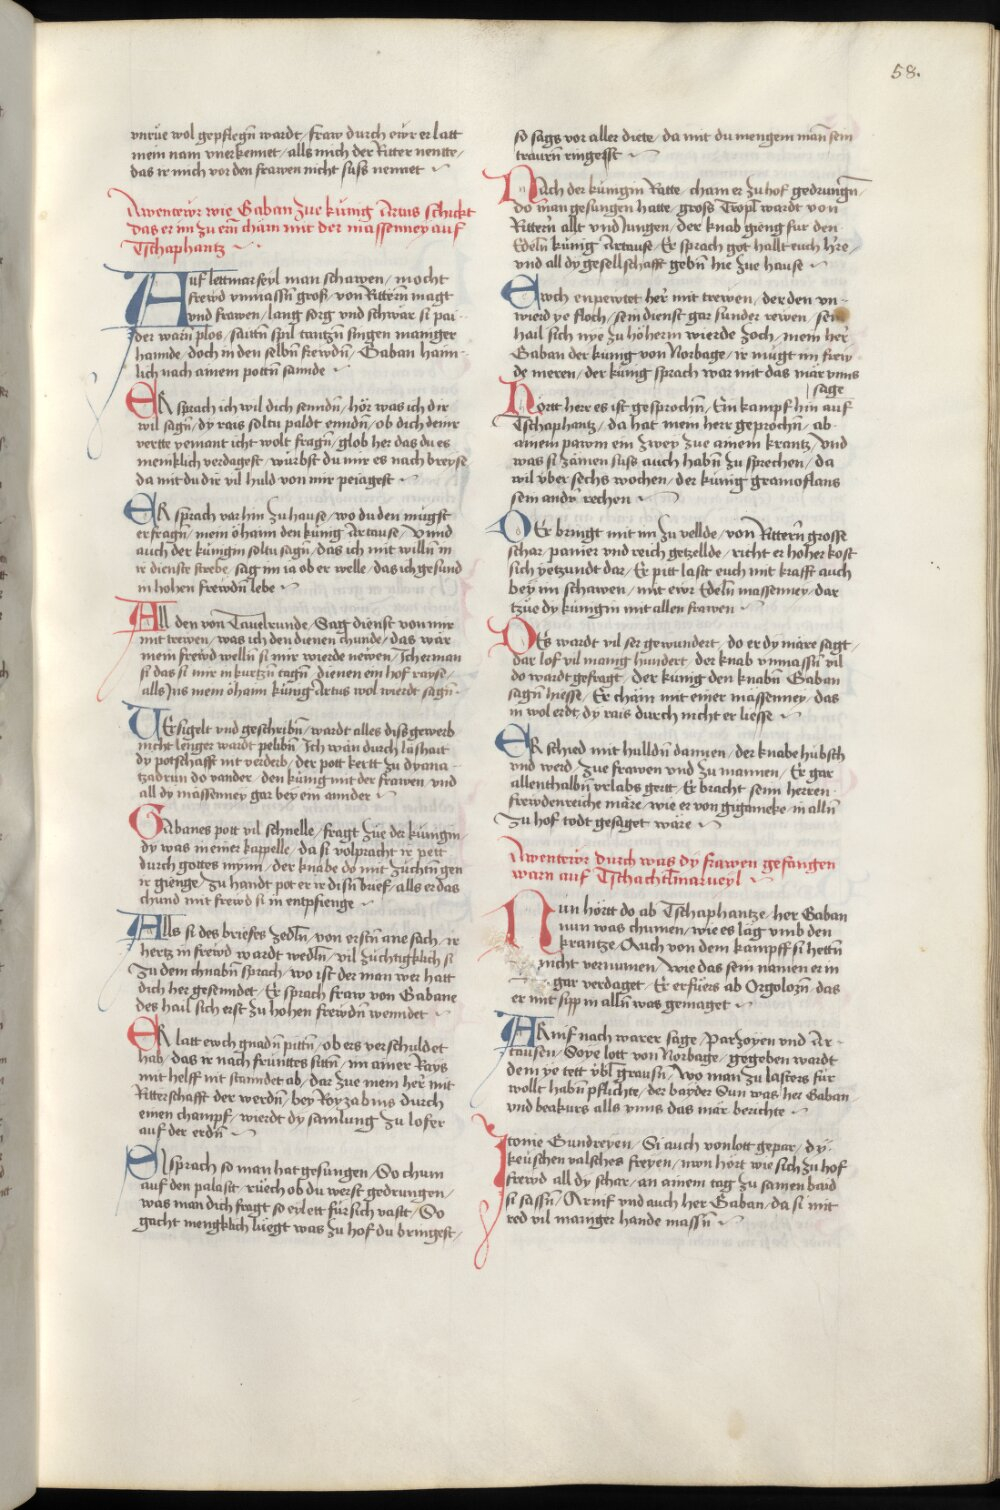 58.
vnrůe wol gepflegñ wardt / fraw durch ewr er latt
mein nam vnerkennet / alls mich der Ritter nentte /
das ir mich vor den frawen nicht suss nennet
Awentewr wie Gaban zue kunig Artus schickt
das er im zu ern cham mit der massenney auf
Tschaphantz
Auf lettmarseyl man schawen / mocht
frewd vnmassñ gross / von Rittern magt
vnd frawen / lang sorg vnd schwar si pai-
der warñ plos / saittñ spil tantzñ singen maniger
hannde / doch in den selbñ frewdñ / Gaban haim-
lich nach ainem pottñ sannde
ER sprach ich wil dich senndñ / hör was ich dir
wil sagñ / dy rais soltu paldt enndñ / ob dich deinr
vertte yemant icht wolt fragñ / glob her das du es
meniklich verdagest / würbst du mir es nach breyse
da mit du dir vil huld von mir peiagest
ER sprach var hin zu hause / wo du den mügst
erfragñ / mein öhaim den künig Artause / Vnnd
auch der künigin soltu sagñ / das ich mit willñ in
ir dienste strebe / sag im ia ob er welle / das ich gesund
in hohen frewdñ lebe
All den von Tauelrunde / Sag dienst von mir
mit trewen / was ich den dienen chunde / das wär
mein frewd wellñ si mir wierde newen / Ich erman
si das si mir in kurtzñ tagñ / dienen ein hof rayse /
alls Ins mein öhaim künig Artus wol wierdt sagñ
VErsigelt vnd geschribñ / wardt alles diss gewerb
nicht lenger wardt pelibñ / Ich wän durch lashait
dy potschafft nit verderb / der pott kertt zu dyana-
tzadrun do vander / den künig mit der frawen / vnd
all dy massenney gar bey ein annder
Gabanes pott vil schnelle / fragt zue der künigin
dy was in einer kappelle / da si volpracht ir pett
durch gottes mynn / der knabe do mit züchtn gen
ir gienge / zu handt pot er ir disñ brief / alls er das
chund mit frewd si in entpfienge
Alls si des briefes zedlñ / von erstñ ane sach / ir
hertz in frewd wardt wedlñ / vil züchtigklich si
zu dem chnabñ sprach / wo ist der man wer hatt
dich her gesenndet / Er sprach fraw von Gabane
des hail sich erst zu hohen frewdñ wenndet
ER latt ewch gnadñ pittñ / ob ers verschuldet
hab / das ir nach frunttes sittñ / im ainer Rays
mit helff nit stanndet ab / dar zue mein her mit
Ritterschafft der werdñ / bey Royzabins durch
einen champf / wierdt dy samlung zu lofer
auf der erdñ
SI sprach so man hat gesungen / So chum
auf den palastt / rüech ob du werst gedrungen /
was man dich fragt so eil ett fürsich vastt / So
gacht mengklich lüegt was zu hof du bringest /
so sags vor aller diete / da mit du mengem man sein
traurñ ringesst
NAch der künigin Ratte / cham er zu hof gedrungñ
do man gesungen hatte / gross Tropl wardt von
Rittern allt vnd Jungen / der knab gieng für den
Edelñ künig Artause / Er sprach got hallt euch h're /
vnd all dy gesellschafft gebñ hie zue hause
Ewch enpewtet her mit trewen / der den vn-
wierd ye floch / sein dienst gar sunder rewen / sein
hail sich nye zu höherm wierde zoch / mein her
Gaban der künig von Norbage / ir mügt im frew
de meren / der künig sprach war mit das mär vnns
sage
Hörtt herr es ist gesprochñ / Ein kampf hin auf
Tschaphantz / da hat mein herr geprochñ / ab
ainem pawm ein zwey zue ainem krantz / Vnd
was si zämen suss auch habñ zu sprechen / da
wil vber sechs wochen / der künig gramoflans
sein andñ rechen
DEr bringt mit im zu vellde / von Rittern grosse
schar / panier vnd reich getzellde / richt er hoher kost
sich yetzundt dar / Er pitt lastt euch mit krafft auch
bey im schawen / mit ewr Edelñ massenney / dar
tzue dy künigin mit allen frawen
DEs wardt vil ser gewundert / do er dy märe sagt /
dar lof vil manig hundert / der knab vnmassñ vil
do wardt gefragt / der künig den knabñ Gaban
sagñ hiesse / Er chäm mit einer mässenney / das
in wol erdt / dy rais durch nicht er liesse
ER schied mit hulldñ dannen / der knabe hübsch
vnd werd / zue frawen vnd zu mannen / Er gar
allenthalbñ vrlabs gertt / Er bracht seim herren
frewdenreiche märe / wie er von gigameke / in allñ
zu hof todt gesaget wäre
Awentewr durch was dy frawen gefangen
warn auf Tschachtlmarueyl
Nun hörtt do ab Tschaphantze / her Gaban
nun was chumen / wie es läg vmb den
krantze / Auch von dem kampff si hettñ
nicht vernumen / Wie das sein namen er in
gar verdaget / Er erfuers ab Orgolozñ / das
er mit sipp in allñ was gemaget
ARnif nach warer sage / Parzoyen vnd Ar-
tausen / Soye lott von Norbage / gegeben wardt
dem ye tett vbl grausñ / Wo man zu lasters für
wollt habñ pflichte / der bayder Sun was her Gaban
vnd beakurs alls vnns das mär berichte
Itonie Gundreyen / Si auch von lott gepar / dy
keuschen valsches freyen / nwn hört wie sich zu hof
frewd all dy schar / an ainem tag zu samen baid
si sassñ / Arnif vnd auch her Gaban / da si mit
red vil maniger hande massñ